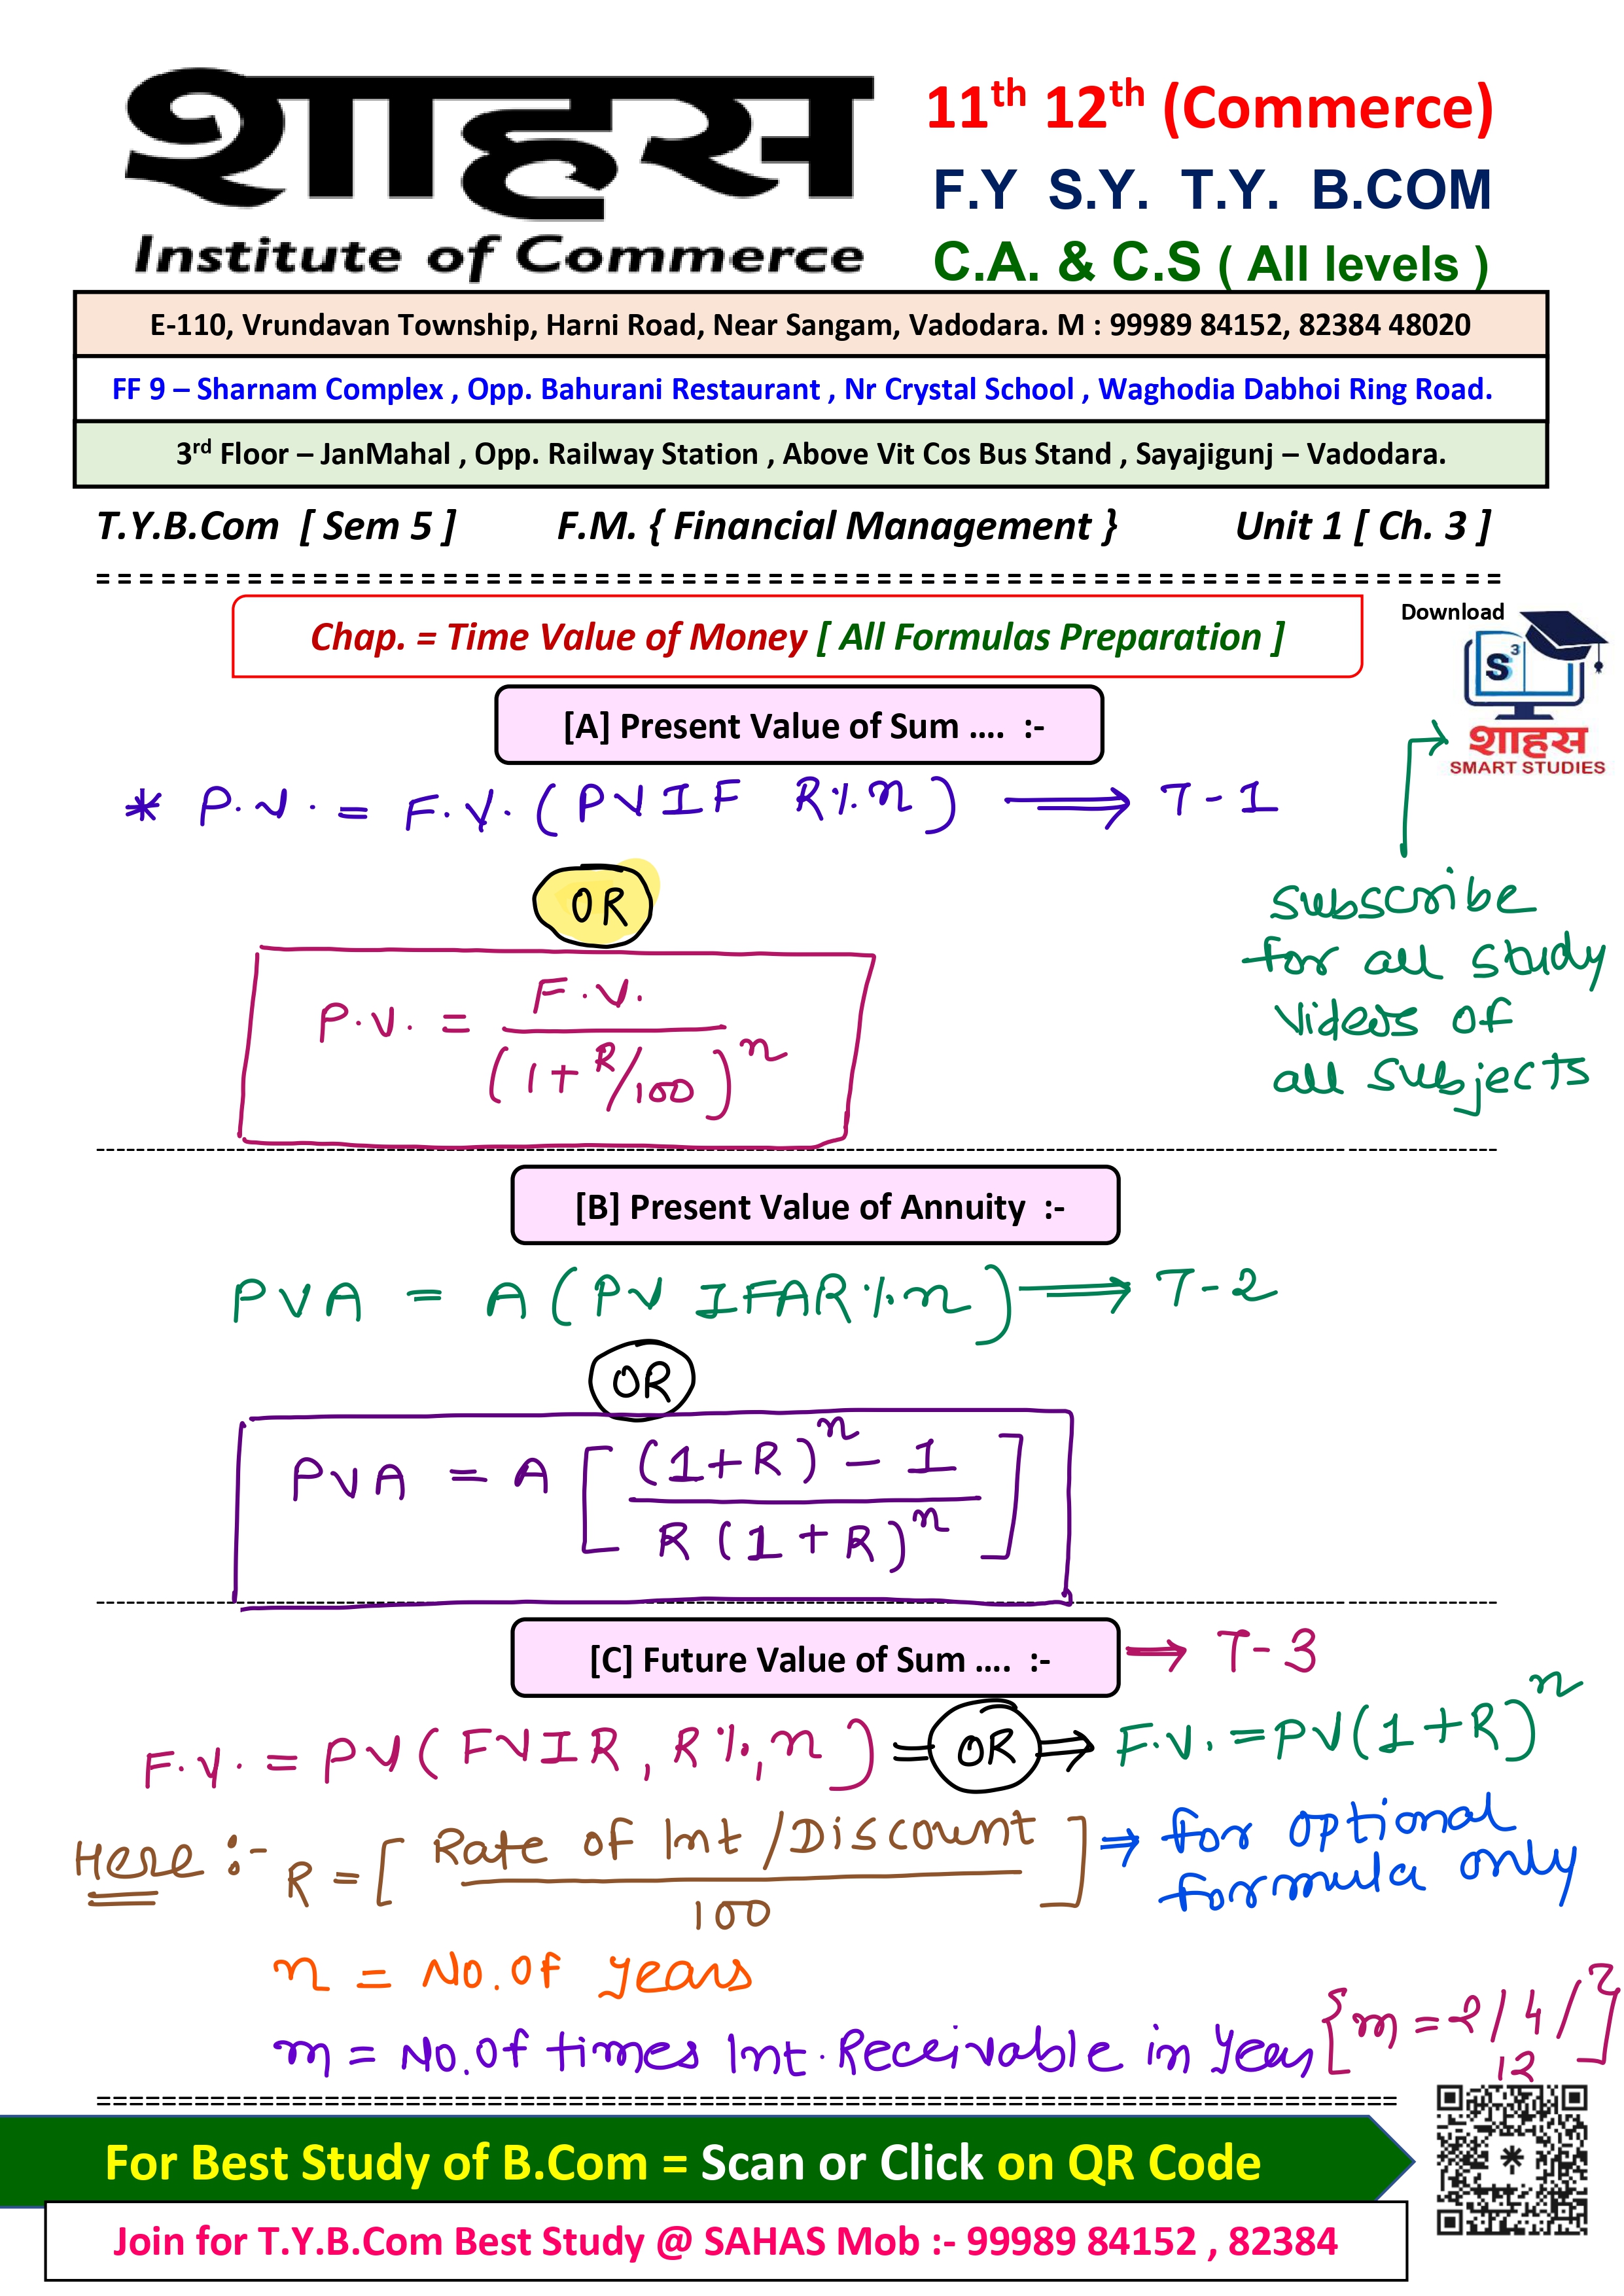 शाहस
Institute of Commerce
11th 12th (Commerce)
F.Y S.Y. T.Y. B.COM
C.A. & C.S ( All levels )
E-110, Vrundavan Township, Harni Road, Near Sangam, Vadodara. M : 99989 84152, 82384 48020
FF 9 – Sharnam Complex , Opp. Bahurani Restaurant , Nr Crystal School , Waghodia Dabhoi Ring Road.
3rd Floor – JanMahal , Opp. Railway Station , Above Vit Cos Bus Stand , Sayajigunj – Vadodara.
T.Y.B.Com [ Sem 5 ] F.M. { Financial Management } Unit 1 [ Ch. 3 ]
Chap. = Time Value of Money [ All Formulas Preparation ]
Download
S3
शाहस
SMART STUDIES
[A] Present Value of Sum .... :-
* P.V. = F.V. ( PVIF R%n ) ⟹ T-1
OR
P.V. = F.V. / (1+ R/100)^n
subscribe
for all study
videos of
all subjects
[B] Present Value of Annuity :-
PVA = A ( PV IFAR%n ) ⟹ T-2
OR
PVA = A [ (1+R)^n - 1 / R (1+R)^n ]
[C] Future Value of Sum .... :- ⟹ T-3
F.V. = PV ( FVIR, R%, n ) = OR ⟹ F.V. = PV (1+R)^n
Here :- R = [ Rate of Int / Discount / 100 ] ⟹ for optional formula only
n = No. of years
m = No. of times Int. Receivable in Year { m = 2/4/12 }
For Best Study of B.Com = Scan or Click on QR Code
Join for T.Y.B.Com Best Study @ SAHAS Mob :- 99989 84152 , 82384